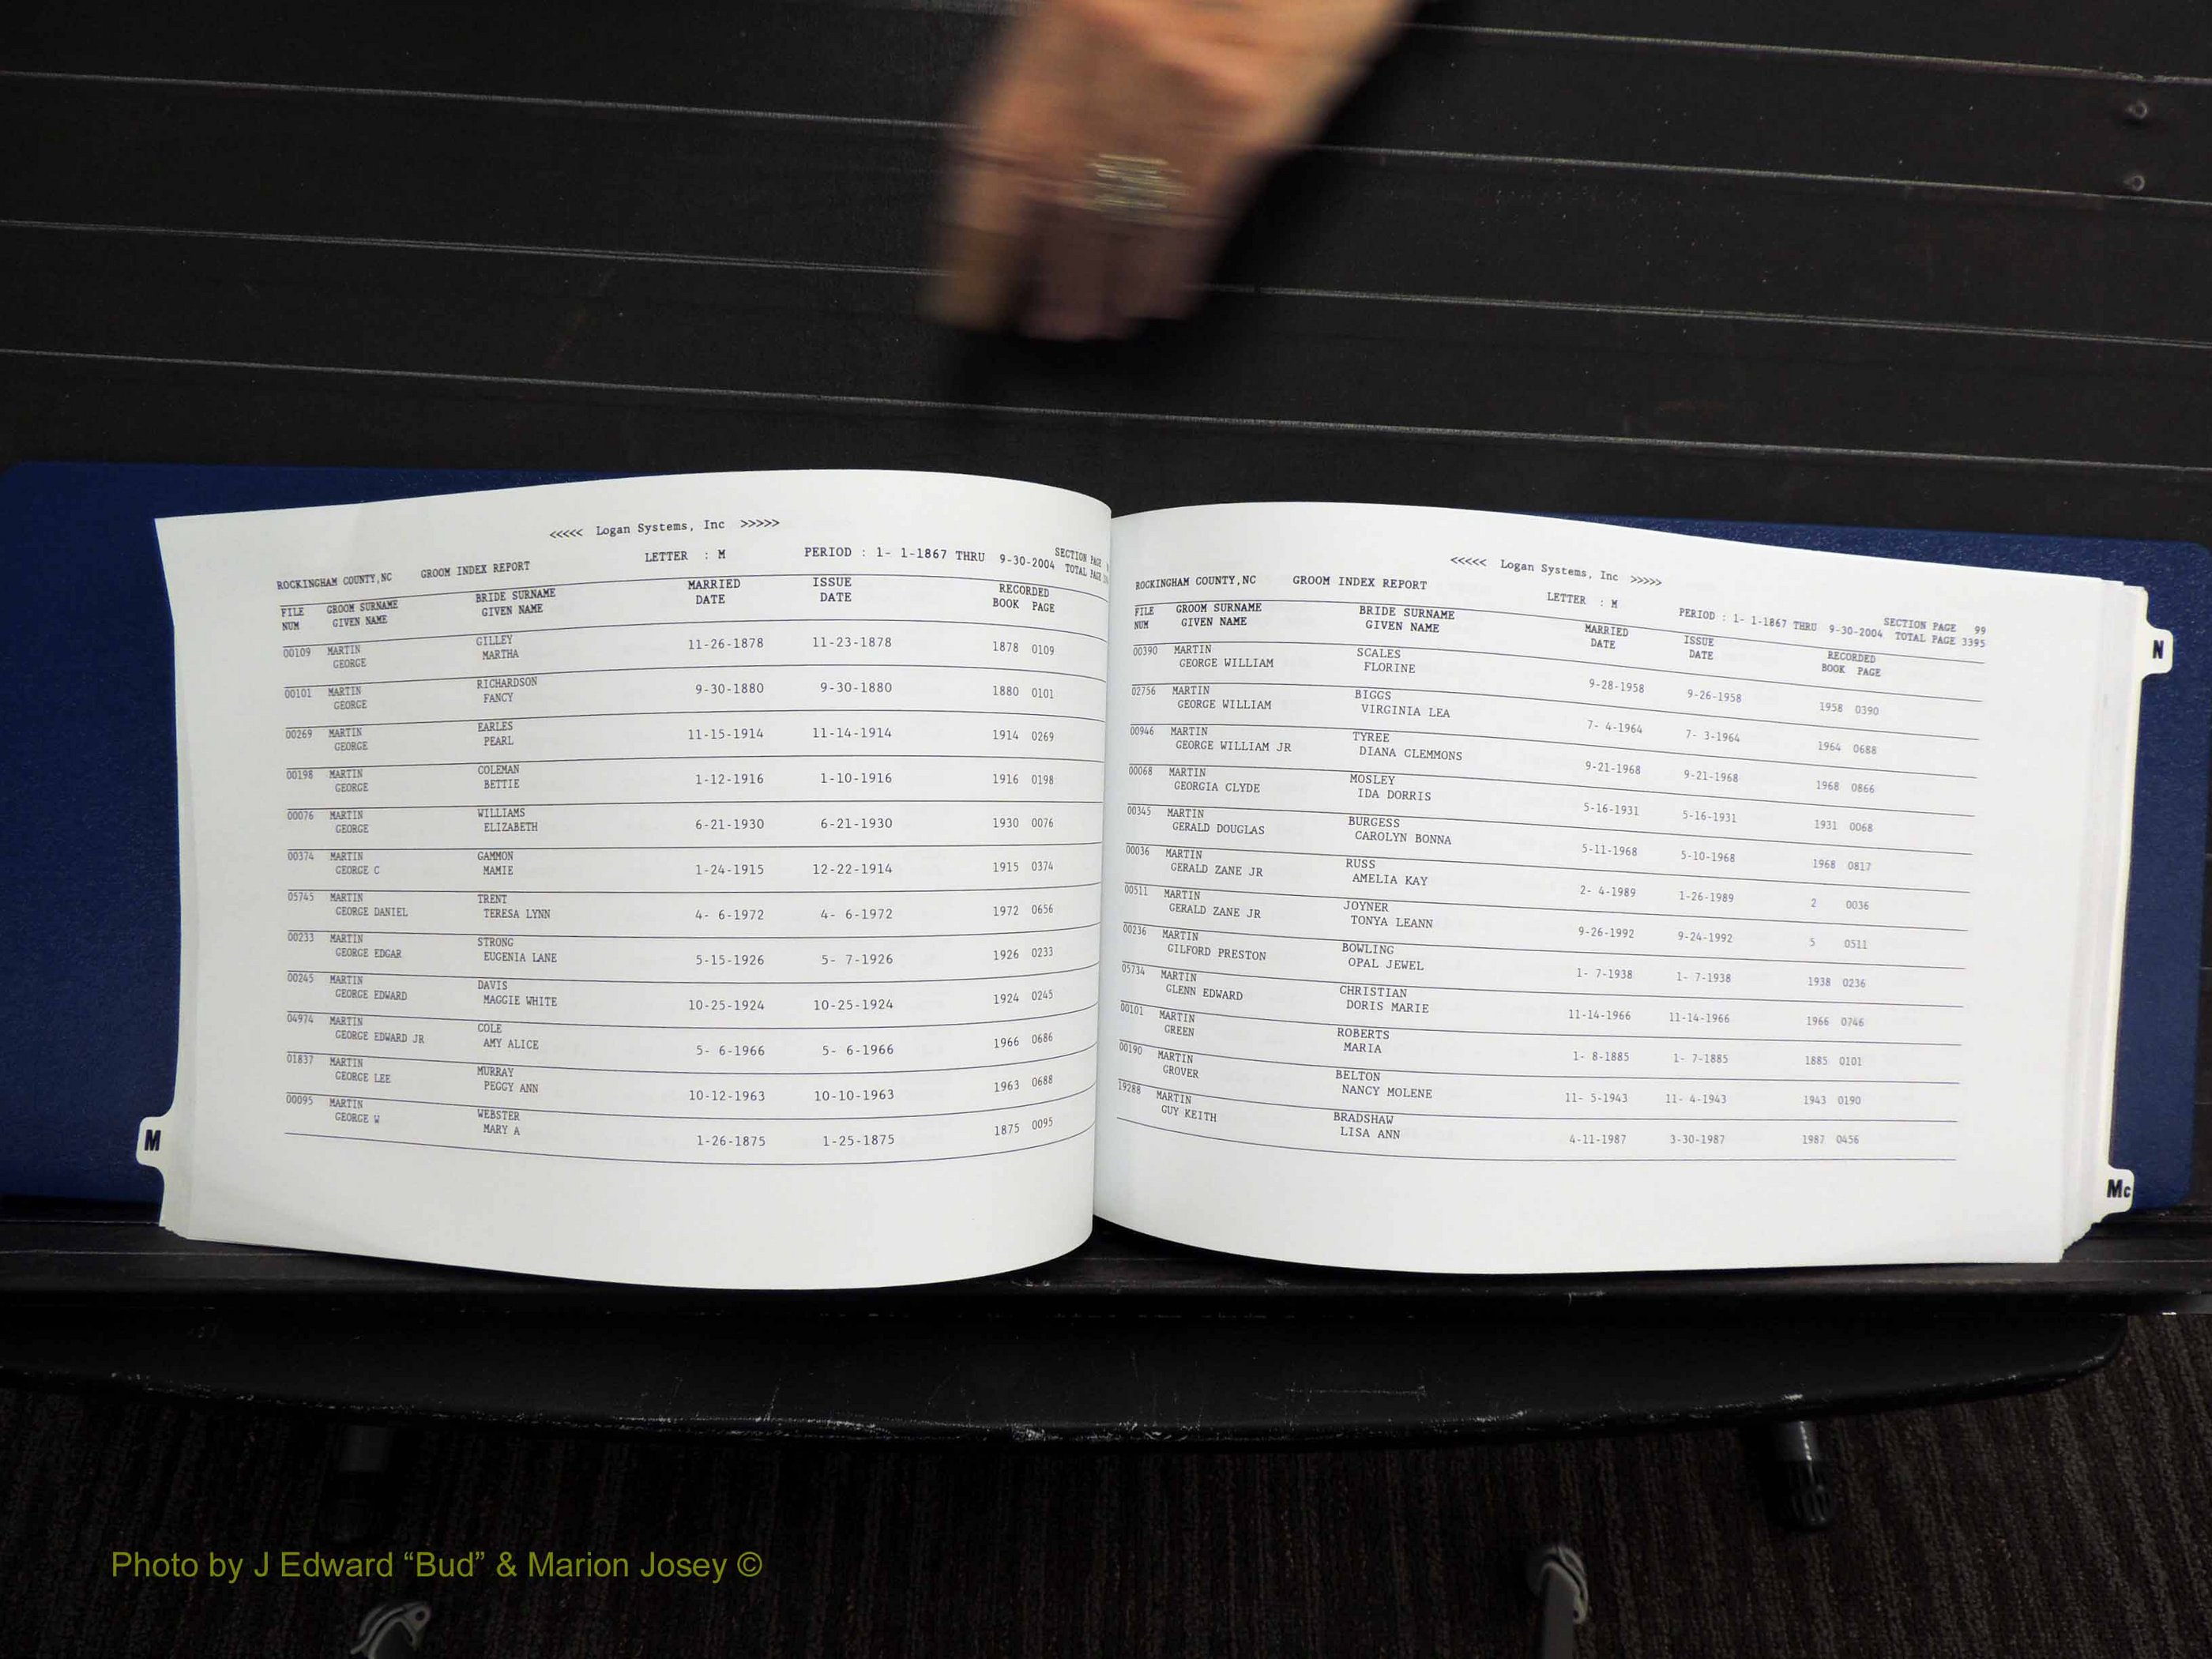 <<<<< Logan Systems, Inc >>>>>
ROCKINGHAM COUNTY,NC GROOM INDEX REPORT LETTER : M PERIOD : 1- 1-1867 THRU 9-30-2004 SECTION PAGE
TOTAL PAGE
FILE GROOM SURNAME BRIDE SURNAME MARRIED ISSUE RECORDED
NUM GIVEN NAME GIVEN NAME DATE DATE BOOK PAGE
00109 MARTIN GILLEY 11-26-1878 11-23-1878 1878 0109
GEORGE MARTHA
00101 MARTIN RICHARDSON 9-30-1880 9-30-1880 1880 0101
GEORGE FANCY
00269 MARTIN EARLES 11-15-1914 11-14-1914 1914 0269
GEORGE PEARL
00198 MARTIN COLEMAN 1-12-1916 1-10-1916 1916 0198
GEORGE BETTIE
00076 MARTIN WILLIAMS 6-21-1930 6-21-1930 1930 0076
GEORGE ELIZABETH
00374 MARTIN GAMMON 1-24-1915 12-22-1914 1915 0374
GEORGE C MAMIE
05745 MARTIN TRENT 4- 6-1972 4- 6-1972 1972 0656
GEORGE DANIEL TERESA LYNN
00233 MARTIN STRONG 5-15-1926 5- 7-1926 1926 0233
GEORGE EDGAR EUGENIA LANE
00245 MARTIN DAVIS 10-25-1924 10-25-1924 1924 0245
GEORGE EDWARD MAGGIE WHITE
04974 MARTIN COLE 5- 6-1966 5- 6-1966 1966 0686
GEORGE EDWARD JR AMY ALICE
01837 MARTIN MURRAY 10-12-1963 10-10-1963 1963 0688
GEORGE LEE PEGGY ANN
00095 MARTIN WEBSTER 1-26-1875 1-25-1875 1875 0095
GEORGE W MARY A
M
<<<<< Logan Systems, Inc >>>>>
ROCKINGHAM COUNTY,NC GROOM INDEX REPORT LETTER : M PERIOD : 1- 1-1867 THRU 9-30-2004 SECTION PAGE 99
TOTAL PAGE 3395
FILE GROOM SURNAME BRIDE SURNAME MARRIED ISSUE RECORDED
NUM GIVEN NAME GIVEN NAME DATE DATE BOOK PAGE
00390 MARTIN SCALES 9-28-1958 9-26-1958 1958 0390
GEORGE WILLIAM FLORINE
02756 MARTIN BIGGS 7- 4-1964 7- 3-1964 1964 0688
GEORGE WILLIAM VIRGINIA LEA
00946 MARTIN TYREE 9-21-1968 9-21-1968 1968 0866
GEORGE WILLIAM JR DIANA CLEMMONS
00068 MARTIN MOSLEY 5-16-1931 5-16-1931 1931 0068
GEORGIA CLYDE IDA DORRIS
00345 MARTIN BURGESS 5-11-1968 5-10-1968 1968 0817
GERALD DOUGLAS CAROLYN BONNA
00036 MARTIN RUSS 2- 4-1989 1-26-1989 2 0036
GERALD ZANE JR AMELIA KAY
00511 MARTIN JOYNER 9-26-1992 9-24-1992 5 0511
GERALD ZANE JR TONYA LEANN
00236 MARTIN BOWLING 1- 7-1938 1- 7-1938 1938 0236
GILFORD PRESTON OPAL JEWEL
05734 MARTIN CHRISTIAN 11-14-1966 11-14-1966 1966 0746
GLENN EDWARD DORIS MARIE
00101 MARTIN ROBERTS 1- 8-1885 1- 7-1885 1885 0101
GREEN MARIA
00190 MARTIN BELTON 11- 5-1943 11- 4-1943 1943 0190
GROVER NANCY MOLENE
19288 MARTIN BRADSHAW 4-11-1987 3-30-1987 1987 0456
GUY KEITH LISA ANN
N
Mc
Photo by J Edward “Bud” & Marion Josey ©